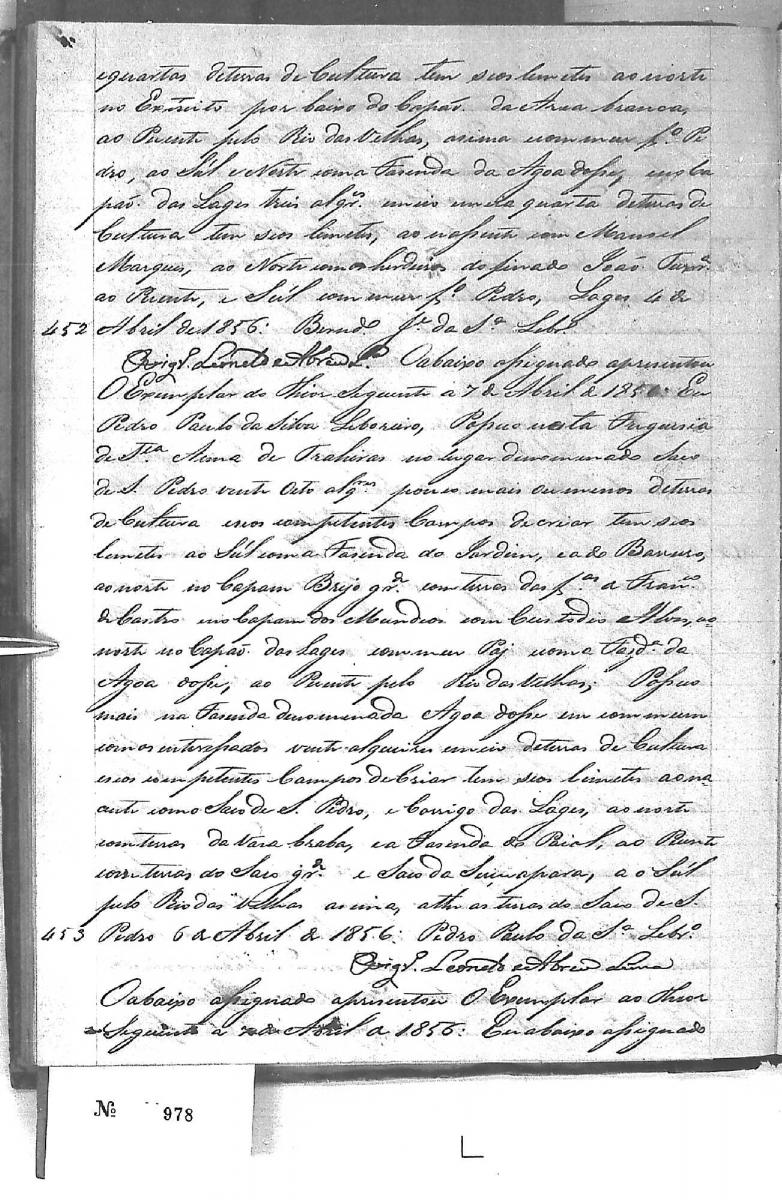 equartas deterras de Cultura tem seos lemetes ao norte
no Exsreito por baixo do Capaõ da Area branca,
ao Puente pelo Rio das Velhas, asima com meu fº Pe
dro, ao Sul e Norte com a Fasenda da Agoa dosse, enoCa
paõ das Lages tres algrs emeio emeia quarta deterras de
Cultura tem seos lemetes, ao nassente com Manoel
Marques, ao Norte com os herdeiros do finado Joaõ
ao Puente, e Súl com meu fº Pedro, Lages 4 de
452 Abril de 1856: da Sª Lebrº
Vigrº Leonel de Abreu Lª Oabaixo assignado apresentou
O Exemplar do Thior Seguente á 7 de Abril de 1856: Eu
Pedro Paulo da Silva Leboreiro, Possuo nesta Freguesia
de Stª Anna de Trahiras no lugar denomenado Saco
de S. Pedro vente Oito algres pouco mais ou menos deterras
de Cultura eseos competentes Campos de criar tem seos
lemetes ao Súl com a Fasenda do Jardim, eado Barreiro,
ao norte no Capam Brejo grde com terras das fªs de Franco
de Castro eno Capam dos Mundeos com Custodio Alves, ao
norte no Capaõ das Lages com meu Paj com a Fazdª da
Agoa dosse, ao Puente pelo Rio das Velhas; Possuo
mais na Fasenda denomenada Agoa dosse em commum
com os enteressados vente alqueires emeio deterras de Cultura
eseos competentes Campos de Criar tem seos lemetes ao na-
cente com o Saco de S. Pedro, e Corrigo das Lages, ao norte
com terras da Vaca braba, e a Fasenda do Paiol, ao Puente
com terras do Saco grde e Saco da Suçuapara, ao Súl
pelo Rio das Velhas asima, athe as terras do Saco de S.
453 Pedro 6 de Abril de 1856: Pedro Paulo da Sª Lebrº
Vigrº Leonel de Abreu Lima
Oabaixo assignado apresentou O Exemplar do Thior
Seguente á 7 de Abril de 1856: Eu abaixo assignado
Nº 978
L